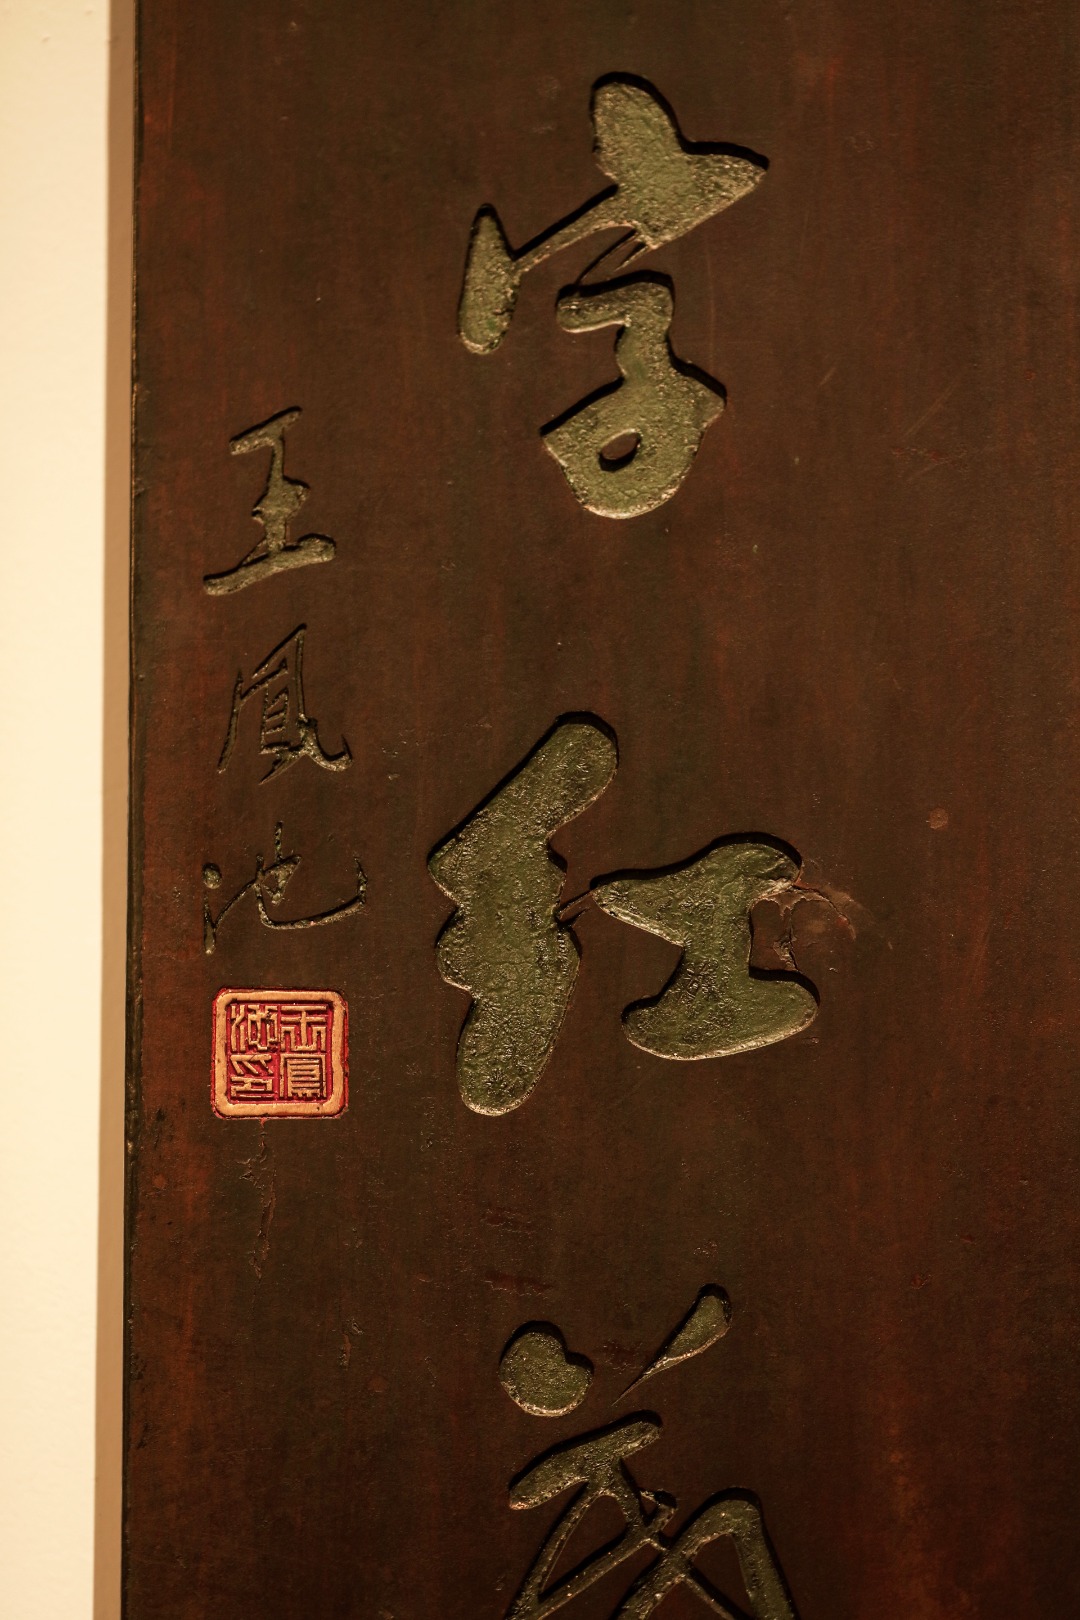 字紅
王鳳池
王鳳池印